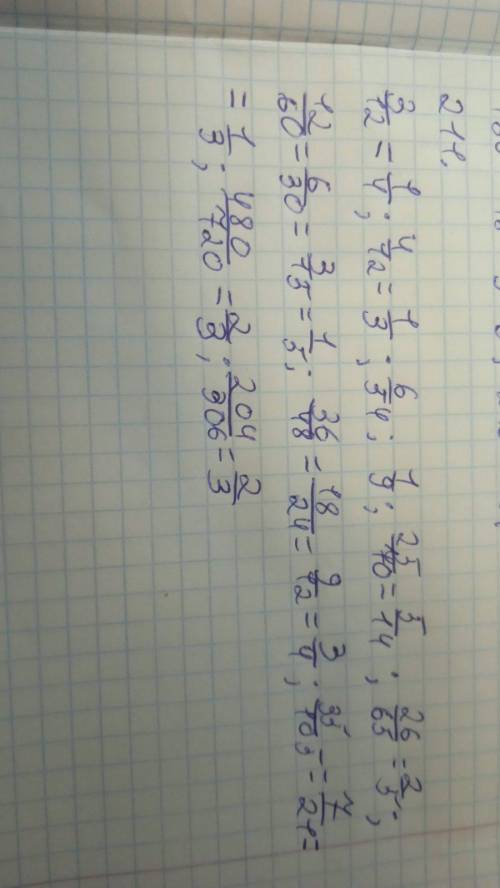 211.
3/12 = 1/4; 4/12 = 1/3; 6/54; 1/9; 25/70 = 5/14; 26/65 = 2/5;
12/60 = 6/30 = 3/15 = 1/5; 36/48 = 18/24 = 9/12 = 3/4; 35/105 = 7/21 =
= 1/3; 480/720 = 2/3; 204/306 = 2/3